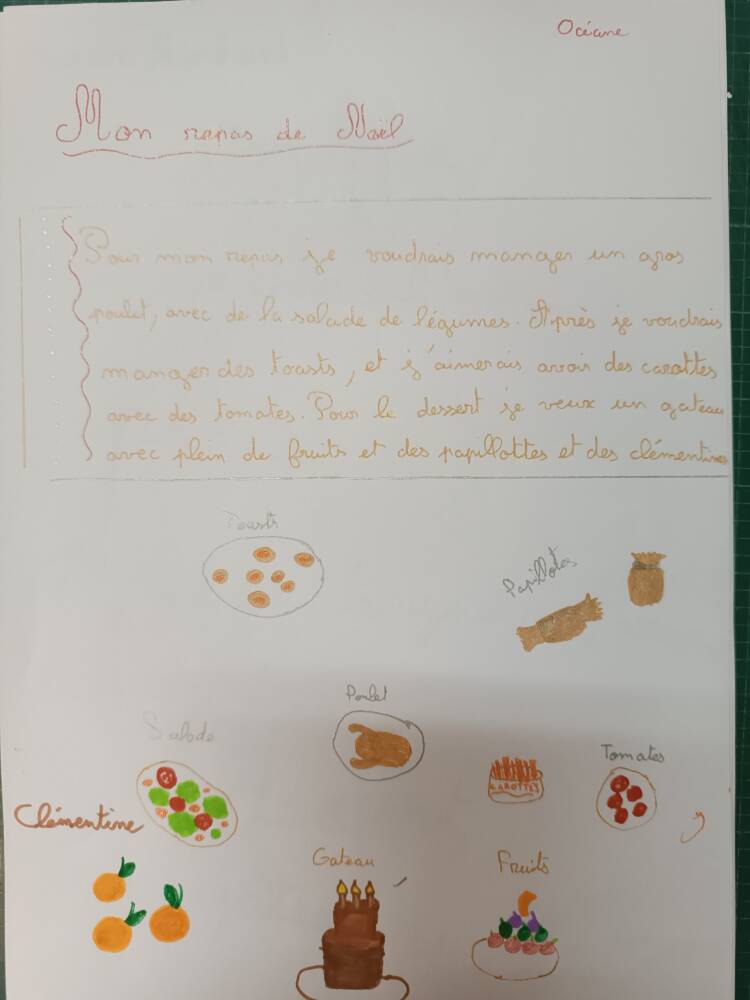 Océane
Mon repas de Noël
Pour mon repas je voudrais manger un gros
poulet, avec de la salade de légumes. Après je voudrais
manger des toasts, et j'aimerais avoir des carottes
avec des tomates. Pour le dessert je veux un gateau
avec plein de fruits et des papillottes et des clémentines
Toasts
Papillotes
Poulet
Salade
CAROTTES
Tomates
Clémentine
Gateau
Fruits